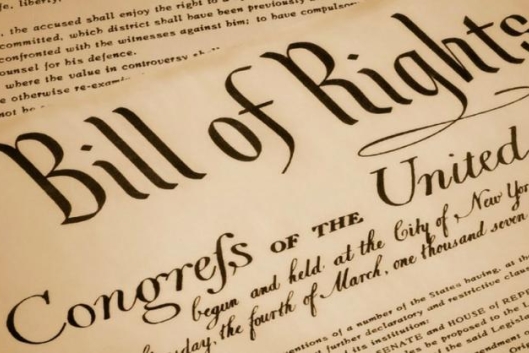 life, liberty,
the accused shall enjoy the right to a
committed, which district shall have been previously
confronted with the witnesses against him; to have compulsory
counsel for his defence.
where the value in controversy shall
otherwise re-exam
not be
Bill of Rights
Congreſs OF THE United
begun and held at the City of New York
the fourth of March, one thousand seven
of a number of the States having, at the
further declaratory and restrictive
its institution:
SENATE and HOUSE of REP
be proposed to the
the said Legisla